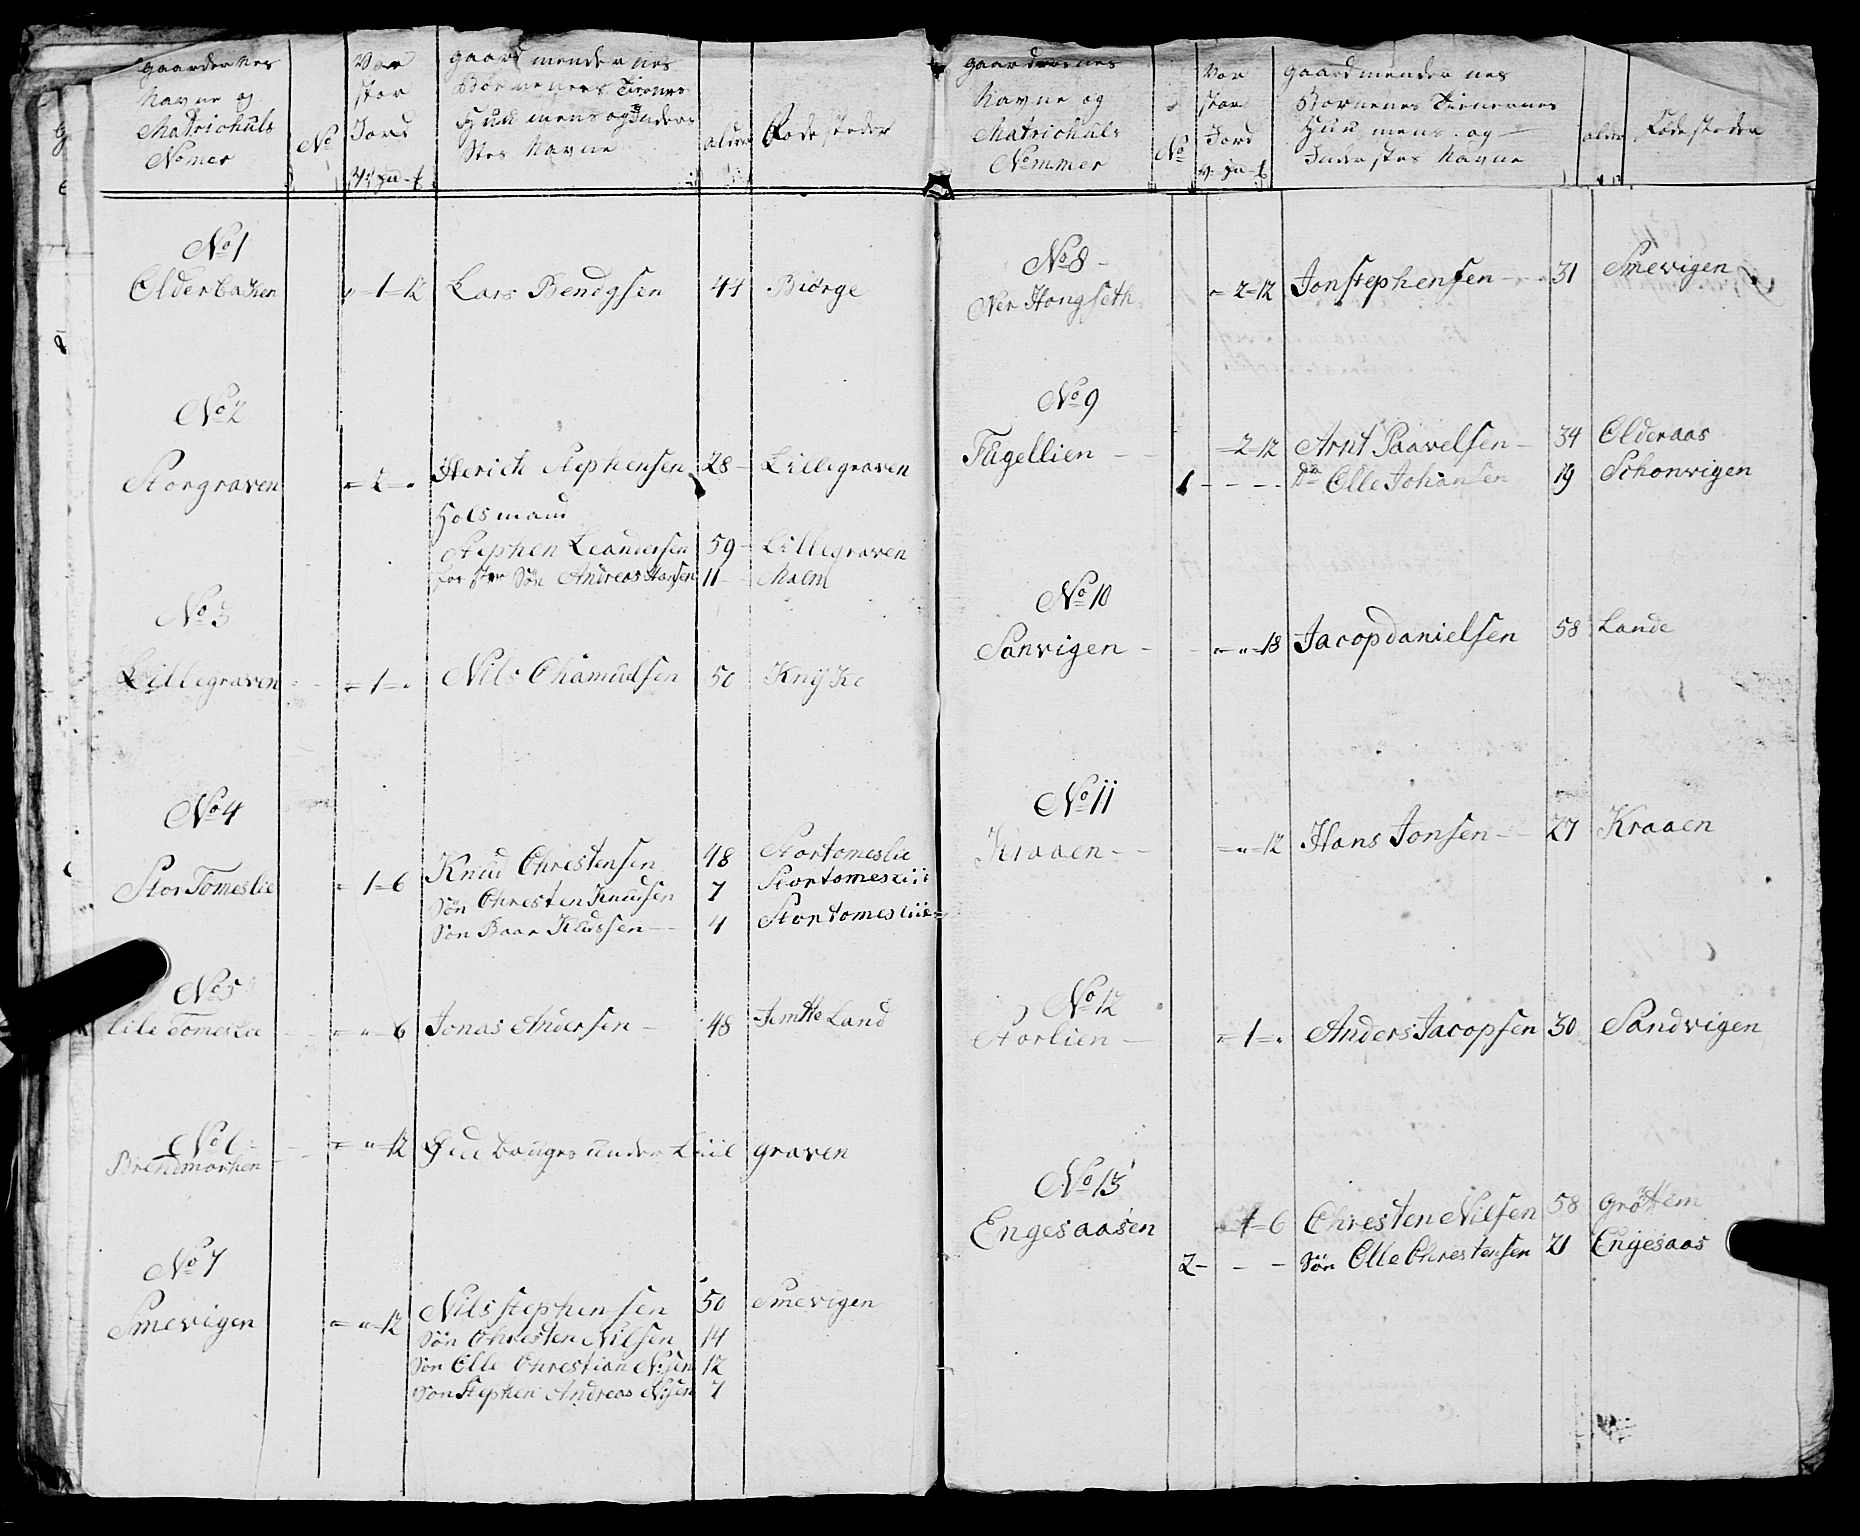 gaardernes
Navne og
Matrichuls
Nomer
No
Vor
stor
Jord
gaard mendernes
Børnenes Tienernes
Huus mens og Inders
Stes Navne
alder
Føde steder
No 1
Olderbaken
" = 1 = 12
Lars Bendgsen
44
Biørge
No 2
Storgraven
= 2 = "
Herich Stephensen
28 -
Lillegraven
Holsmand
Stephen Leandersen
59 -
Lillegraven
foster Søn Andreas Hansen
11 -
Malm
No 3
Lillegraven
= 1 = "
Nils Chamudsen
50
Knÿke
No 4
Stor Tomeslie
= 1 = 6
Knud Chrestensen
48
Stortomeslie
Søn Chresten Knudsen
7
Stortomesliie
Søn Baar Knudsen -
4
Stortomesliie
No 5
Lile Tomeslie
= " = 6
Jonas Andersen -
48
Jemtte Land
No 6
Brendmorken
= " = 12
Øde bruges under Liil graven
No 7
Smevigen
= " = 12
Nils Stephensen
50
Smevigen
Søn Chresten Nilsen
14
Søn Olle Chrestian Nilsen
12
Søn Stephen Andreas Nilsen
7
gaardernes
Navne og
Matrichuls
Nommer
No
Vor
stor
Jord
gaardmendernes
Børnenes Tienernes
Huus mens og
Inderstes Navne
alder
Føde steder
No 8 -
Ner Hongseth
= 2 = 12
Jon Stephensen -
31
Smevigen
No 9
Fugellien - -
= 2 = 12
Arnt Paavelsen -
34
Olderaas
1 - - - -
Do Olle Johansen
19
Schonvigen
No 10
Sanvigen -
= " = 18
Jacop danielsen
58
Lande
No 11
Kraaen - -
= " = 12
Hans Jonsen - -
27
Kraaen
No 12
Storlien -
= 1 = "
Anders Jacopsen
30
Sandvigen
No 13
Engesaasen
= 1 = 6
Chresten Nilsen
58
Grøttem
2 - - -
Søn Olle Chrestensen
21
Engesaas